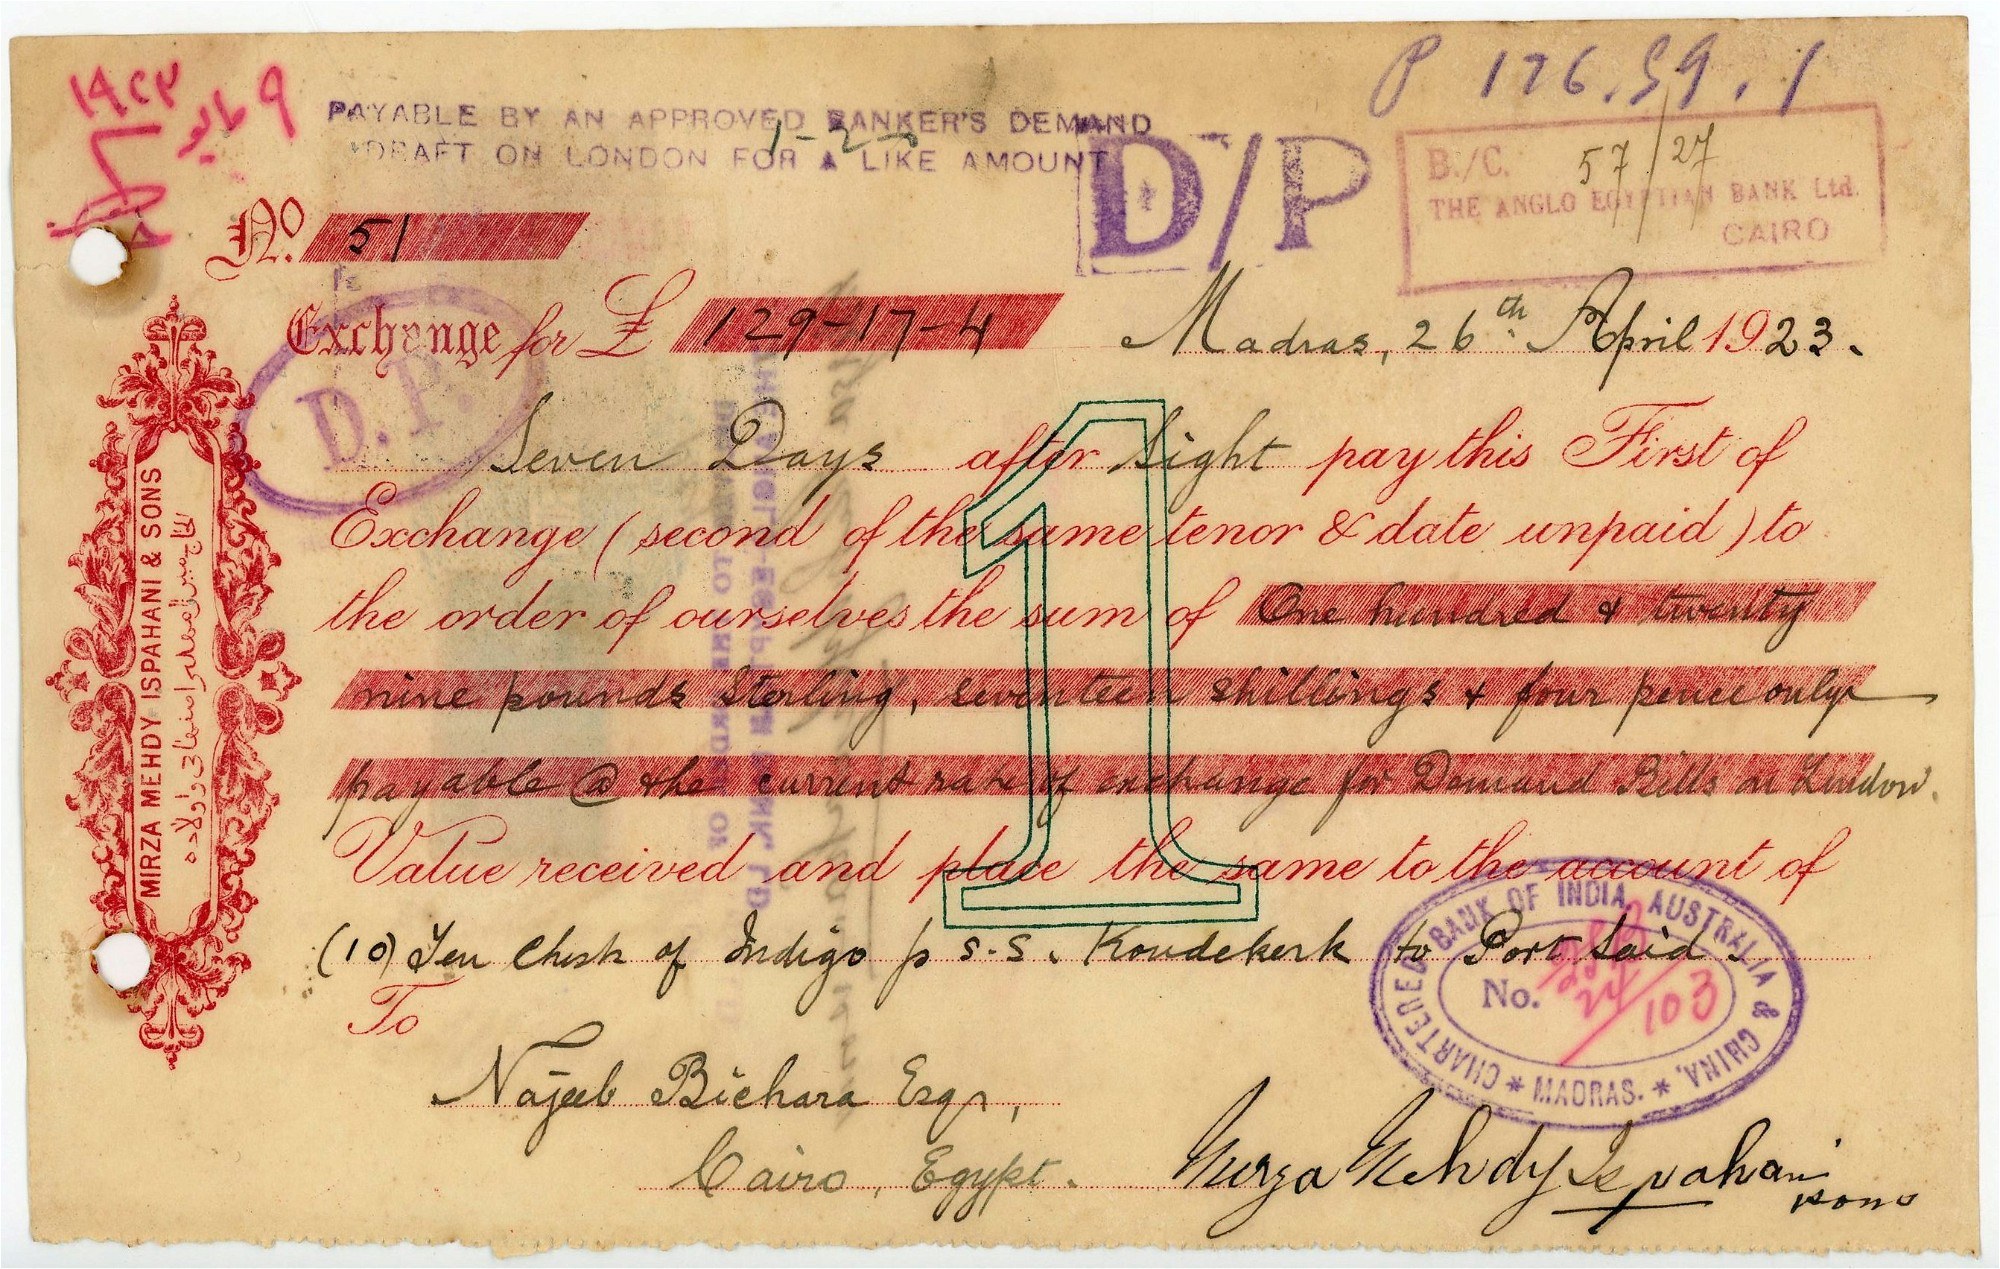 P 176.59.1
PAYABLE BY AN APPROVED BANKER'S DEMAND
DRAFT ON LONDON FOR A LIKE AMOUNT
D/P
B./C. 57/27
THE ANGLO EGYPTIAN BANK Ltd.
CAIRO
١٩٢٣
٩ مايو
No. 51
Exchange for £ 129-17-4 Madras, 26th April 1923.
D.P.
Seven Days after Sight pay this First of
Exchange (second of the same tenor & date unpaid) to
the order of ourselves the sum of One hundred & twenty
nine pounds Sterling, seventeen shillings & four pence only
payable @ the current rate of exchange for Demand Bills on London.
Value received and place the same to the account of
(10) Ten Chests of Indigo p S.S. Koudekerk to Port Said.
To
Najeeb Bichara Esqr,
Cairo, Egypt.
Mirza Mehdy Ispahani
& Sons
1
MIRZA MEHDY ISPAHANI & SONS
CHARTERED BANK OF INDIA, AUSTRALIA & CHINA,
No. 103
* MADRAS. *